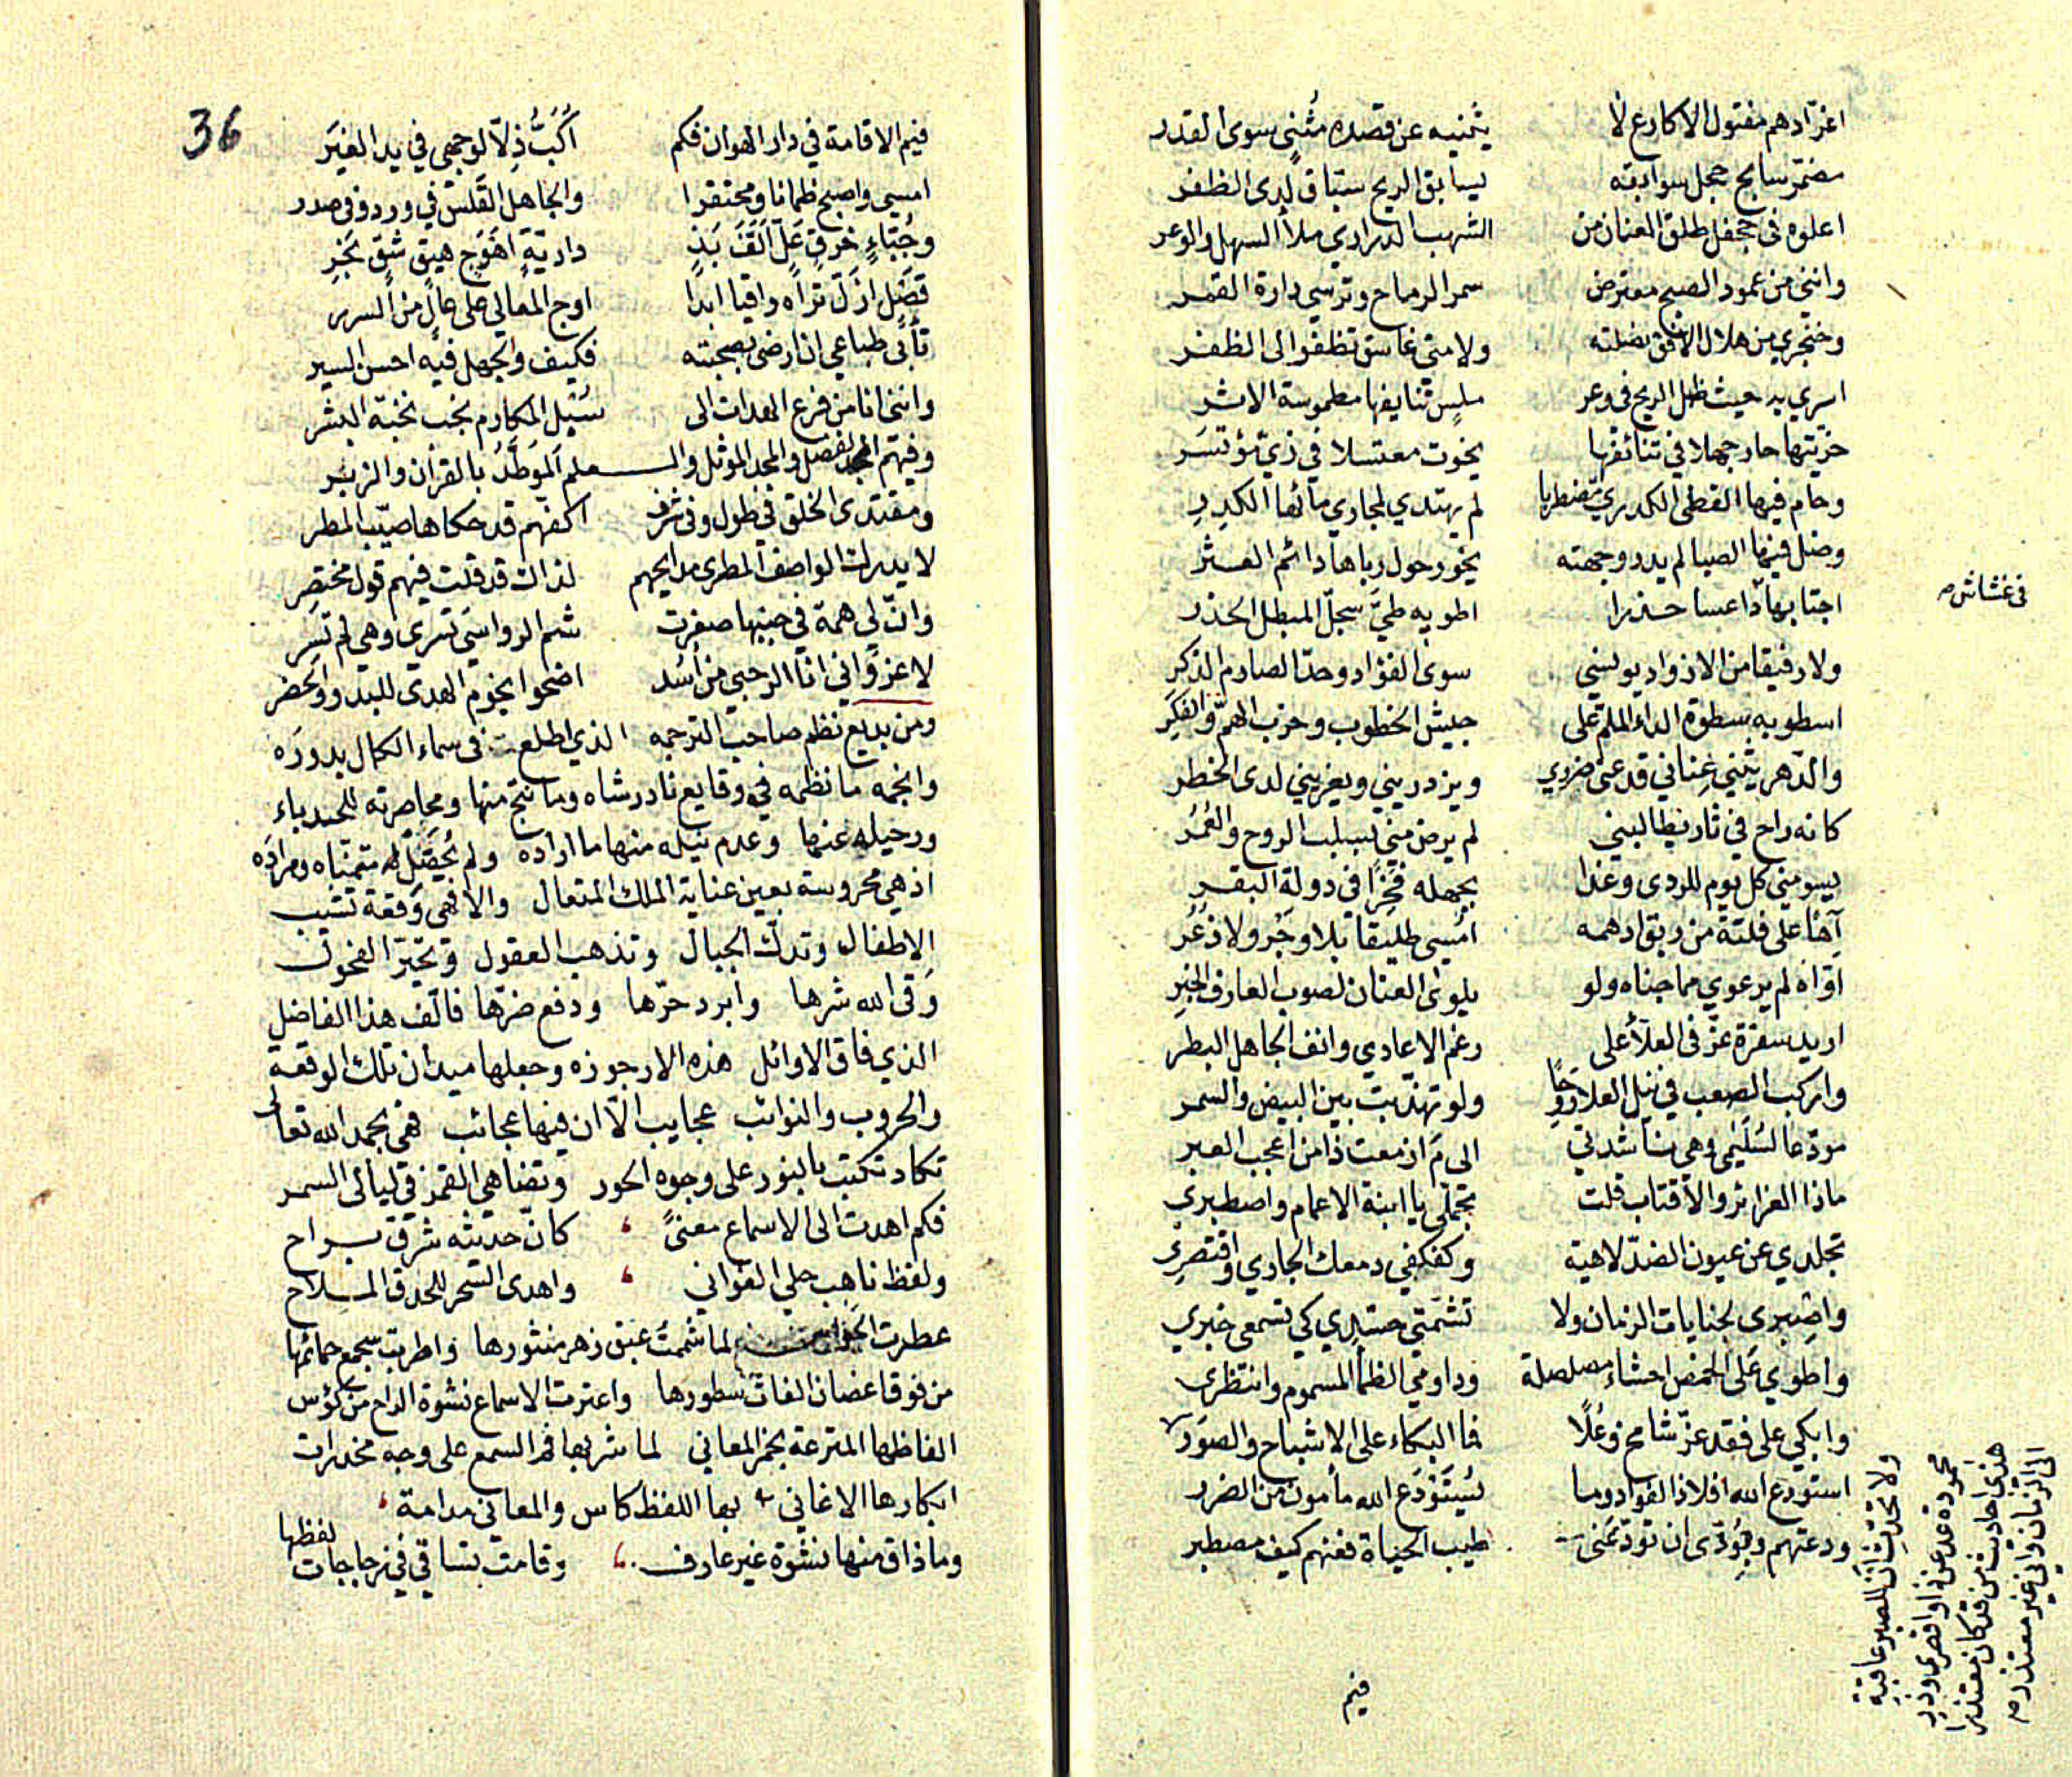 اغرّ ادهم مفتول الاكارع لا يثنيه عن قصده مُثنٍ سوى القدر
مضمّر سابح حجل سوابقه يسابق الريح سبّاق لدى الظفر
اعلوه فى جحفل طلق العنان من الشهب الدراري ملأ السهل والوعر
وانثني من عمود الصبح معترض سمر الرماح وترسي دارة القمر
وخنجري من هلال الافق نصلته ولامتي غاسق تظفوا الى الظفر
اسري به حيث ظل الريح فى وعر ملس ثنايفها مطموسة الاثر
خرّيتها حار جهلا في تنائفها يخوت معتسلا في زيّ مؤتسَر
وحام فيها القطى الكدري مضطربا لم يهتدي لمجاري مائها الكدِرِ
وضل فيها الصبا لم يدر وجهته يخور حول رباها دائم العثر
اجتابها داعسا حذرا اطويه طيّ سجلّ المبطل الحذر
فى غشاش صح
ولا رفيقا من الازواد يونسني سوى الفؤاد وحدّ الصارم الذكر
اسطو به سطوة الداء الملم على جيش الخطوب وحزب الهمّ والفكَر
والدّهر يثني عِناني قد عنى ضرري ويزدريني ويغريني لدى الخطر
كانه راح في ثار يطالبني لم يرض مني بسلب الروح والعُمُر
يسومني كل يوم للردى وغدا بجهله فخِرًا فى دولة البقر
آها على فلتة من ربق ادهمه امُسي طليقا بلا وجَر ولا ذعُر
اوّاه لم يرعوي مما جناه ولو يلوى العنان لصوب العارف الخبِر
اريد سفرة عزّ فى العلا على رغم الاعادي وانف الجاهل البطر
واركب الصعب في نيل العلا ولو تهذّبت بين البيض والسمر
مودّعا لسُلَيمى وهى تناشدني الى مَ ازمعت ذا من اعجب العبر
ماذا الغرائر والاقتاب قلت تجمّلى يا ابنة الاعمام واصطبري
تجلدي عن عيون الضدّ لاهية وكفكفي دمعك الجاري واقتصِري
واصبِري لجنايات الزمان ولا تشمّتي حسّدي كي تسمعي خبري
واطوي على الخمص احشاء مصلصلة وداومي الظمأ المسموم وانتظري
وابكي على فقد عزّ شامخ وعُلًا فما البكاء على الاشباح والصوَر
استودع الله افلاذ الفؤاد وما يُستَوْدَع الله مأمون من الضرر
ودعتهم وبودّى ان تودّعنى طيب الحياة فعنهم كيف مصطبر
ولا تحدثن ان للصبر عاقبة
محمودة عد عن ذا واقصرى وذر
هذى احاديث من قد كان معتذرا
الى الزمان واني غير معتذر صح
فيم
36
فيم الاقامة في دار الهوان فكم أُكَبُّ ذِلّا لوجهي في يد الغِيَر
امسي واصبح ظمانا ومحتقرا والجاهل القَلسْ في ورد وفى صدر
وجُبّاءٍ خرقٍ عَلّ الَفّ بَذٍ داريّةٍ اهوَج هيق شق نَخِرِ
فضَل ازلّ تراه راقيا ابدا اوج المعالي على عالٍ من السرر
تأبى طباعي ان ارضى بصحبته فكيف والجهل فيه احسن السير
وانني انا من فرع الهداة الى سُبُل المكارم نجب نخبة البشر
وفيهم الفضل والمجد الموثل والعلم الموَطَّدُ بالقرآن والزبر
ومقتدى الخلق في طول وفى شرف اكفهم قد حكاها صيّب المطر
لا يدرك الواصف المطرى مدايحهم لذاك قد قلت فيهم قول مختصِر
وانّ لي همة في جنبها صغرت شم الرواسي تسري وهي لم تَسِر
لا غروَ اني انا الرحبي من اسُد اضحوا نجوم الهدى للبدو والحضر
ومن بديع نظم صاحب الترجمه الذي اطلعت فى سماء الكمال بدوره
وانجمه ما نظمه في وقايع نادر شاه وما نتج منها ومحاصرته للحدباء
ورحيله عنها وعدم نيله منها ما اراده ولم يُحَصّل له متمنّاه ومراده
اذ هي محروسة بعين عناية الملك المتعال والا فهى وقعة تشيب
الاطفال وتدكّ الجبال وتذهب العقول وتحيّر الفحول
وَقى الله شرها وابرد حرّها ودفع ضرّها فالّف هذا الفاضل
الذي فاق الاوائل هذه الارجوزه وجعلها ميدان تلك الوقعة
والحروب والنوائب عجايب الّا ان فيها عجائب فهى بحمد الله تعالى
تكاد تكتب بالنور على وجوه الحور وتضاهي القمر في ليالى السمر
فكم اهدت الى الاسماع معنىً كانّ حديثه شرق براح
ولفظ ناهب حلي الغواني واهدى السحر للحدق الملاح
عطرت لما شممتُ عبق زهر منثورها واطربت بسجع حمائمها
من فوق اغضان الفات سطورها واعترت الاسماع نشوة الراح من كؤس
الفاظها المترعة بخمر المعاني لما شربها فم السمع على وجه مخدرات
ابكارها الاغاني بها اللفظ كاس والمعانى مدامة
وما ذاق منها نشوة غير عارف وقامت بساقي في زجاجات لفظها